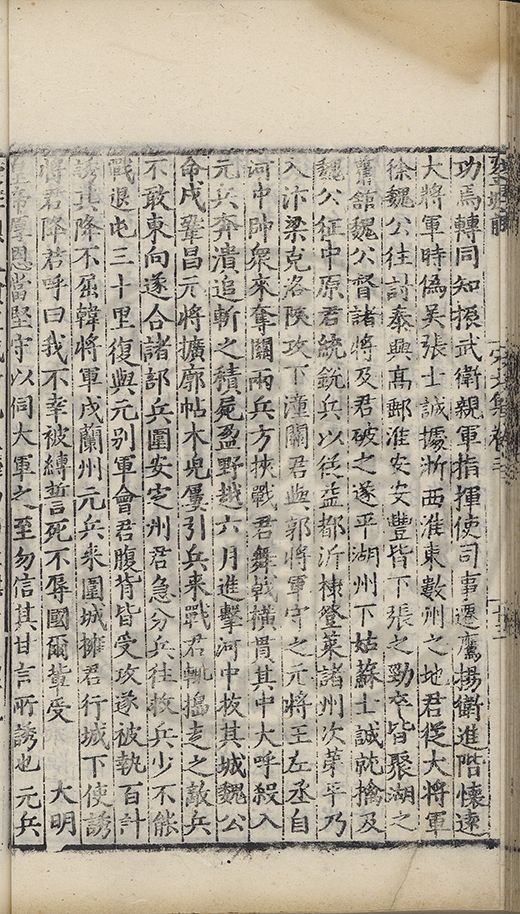 功焉轉同知振武衛親軍指揮使司事遷鷹揚衛進階懷遠
大將軍時偽吳張士誠據浙西淮東數州之地君從大將軍
徐魏公往討泰興高郵淮安安豐皆下張之勁卒皆聚湖之
舊館魏公督諸將及君破之遂平湖州下姑蘇士誠就擒及
魏公征中原君統銳兵以從益都沂棣登萊諸州次第平乃
入汴梁克洛陝攻下潼關君與郭將軍守之元將王左丞自
河中帥衆來奪關兩兵方挾戰君舞戟橫貫其中大呼殺入
元兵奔潰追斬之積屍盈野越六月進擊河中拔其城魏公
命戍鞏昌元將擴廓帖木兒屢引兵來戰君輒搗走之敵兵
不敢東向遂合諸部兵圍安定州君急分兵往救兵少不能
戰退屯三十里復與元别軍會君腹背皆受攻遂被執百計
誘其降不屈韓將軍戍蘭州元兵來圍城擁君行城下使誘
將君降君呼曰我不幸被縛誓死不辱國爾輩受 大明
皇帝厚恩當堅守以伺大軍之至勿信其甘言所誘也元兵